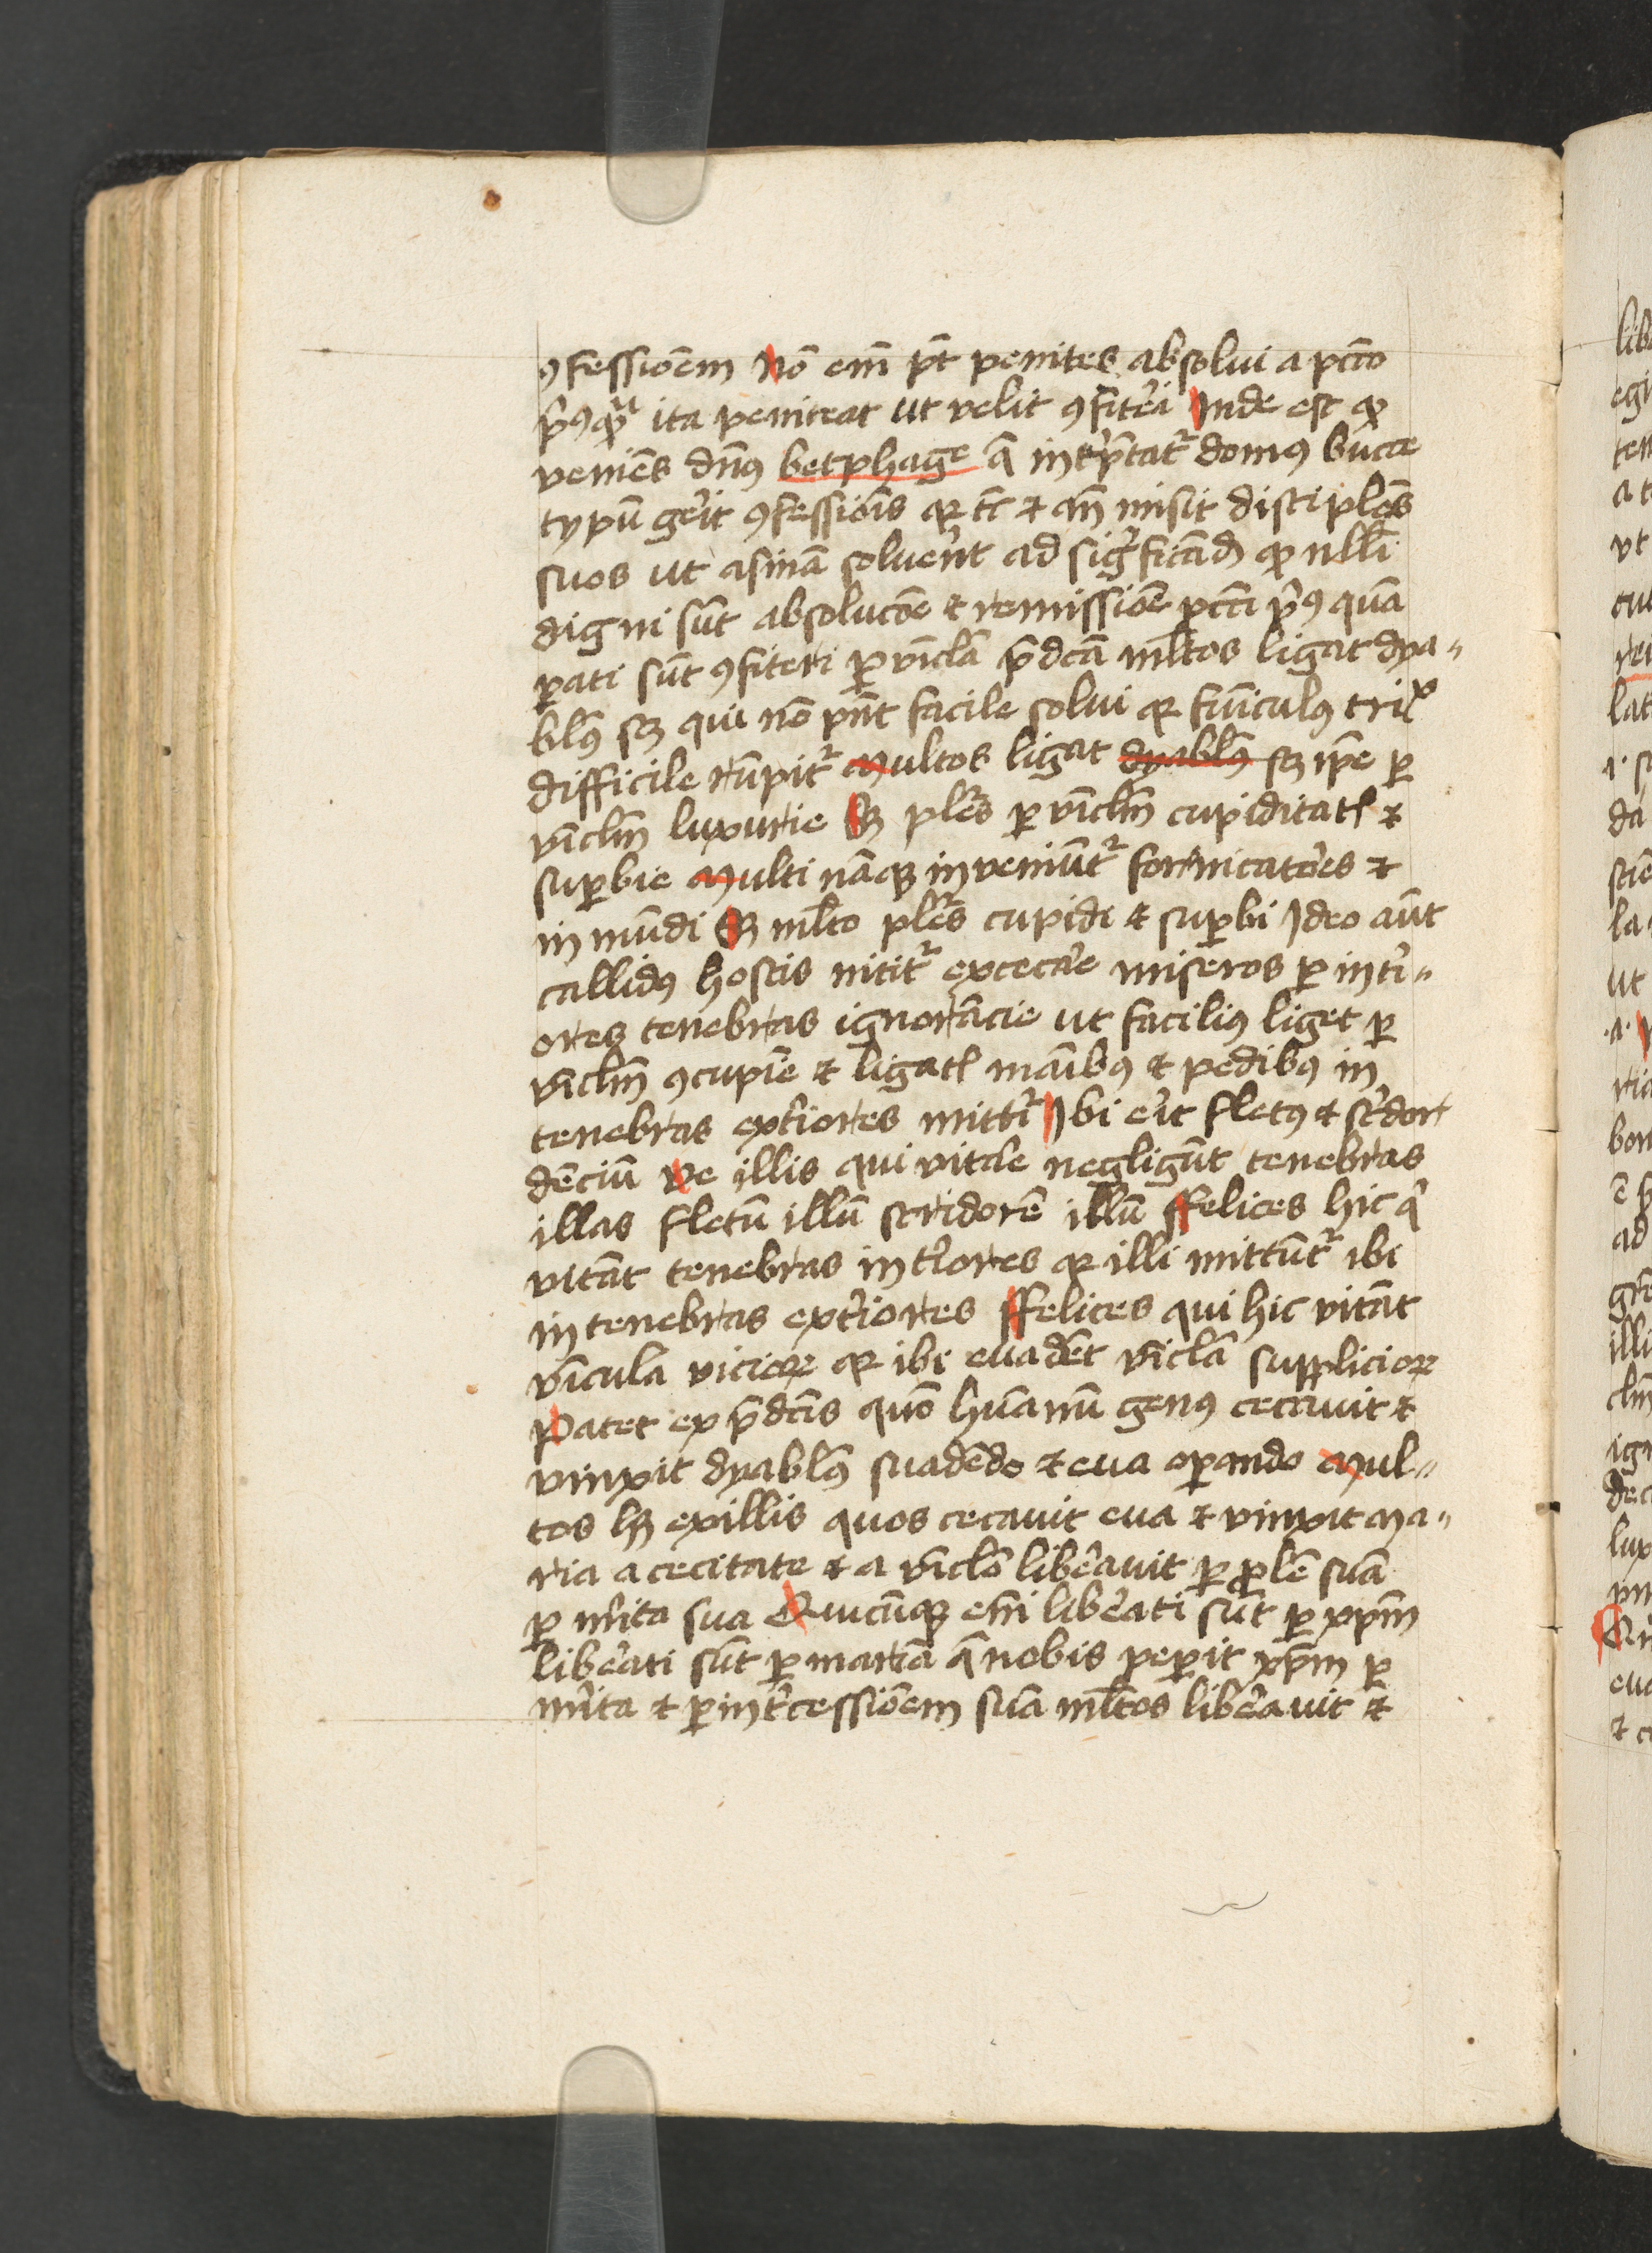 ꝯfessiōem Nō em̄ pt̄ penitēs absolui a pctō
pͥꝰꝙᷓ ita peniteat ut velit ꝯfitei᷑ Inde est ꝙ
veniēs dn̄ꝰ betphage q̄ int̾p̄tat᷑ domꝰ bucce
typū ge᷑it ꝯfessiōis qꝛ tc̄ ⁊ qn̄ misit disciplo̅s
suos ut asinā solue᷑nt ad sig̾ficād̄ ꝙ nlli̅
digni sūt absolucōe ⁊ remissiōe pcc̄i pͥꝰ quā
ꝑati sūt ꝯfiteri ꝑ vi̅cla̅ p̄dcā ml̅tos ligat dya〃
bl̅ꝰ sꝫ qui nō pn̄t facile solui qꝛ fūiculꝰ tril̾x
difficile rūpit᷑ Multos ligat dyabl̅ꝰ sꝫ ip̄e ꝑ
vi̅clm̅ luxurie Sꝫ ple̅s ꝑ vi̅clm̅ cupiditatꝭ ⁊
suꝑbie Multi nāqꝫ inveniūt᷑ fornicato᷑es ⁊
in mūdi Sꝫ ml̅to ple̅s cupidi ⁊ suꝑbi Ideo aūt
callidꝰ hostis nitit᷑ excecar̄e miseros ꝑ inte᷑i〃
ores tenebras ignorācie ut faciliꝰ liget ꝑ
vi̅clm̅ ꝯcupīe ⁊ ligatꝭ māibꝰ ⁊ pedibꝰ in
tenebras ext᷑iores mitti᷑ Ibi e᷑it fletꝰ ⁊ st᷑idor
dēciū Ve illis qui vitar̄e negligūt tenebras
illas fletū illū stridorē illū ffelices hic qͥ
vitāt tenebras int᷑iores qꝛ illi mittūt᷑ ibi
in tenebras ext᷑iores ffelices qui hic vitāt
vīcula vicioꝝ qꝛ ibi euadēt vi̅cla̅ supplicioꝝ
Patet ex p̄dcīs quō hūanū genꝰ cecauit ⁊
vinxit dyabl̅ꝰ suadēdo ⁊ eua oꝑando Mul〃
tos lꝫ ex illis quos cecauit eua ⁊ vinxit Ma〃
ria a cecitate ⁊ a vi̅clo̅ libe᷑auit ꝑ ꝓlē suā
ꝑ me᷑ita sua Quicūqꝫ em̄i libe᷑ati sūt ꝑ xp̄m
libe᷑ati sūt ꝑ mariā q̄ nobis peꝑit xp̄m ꝑ
me᷑ita ⁊ ꝑ int᷑cessiōem suā ml̅tos libe᷑auit ⁊